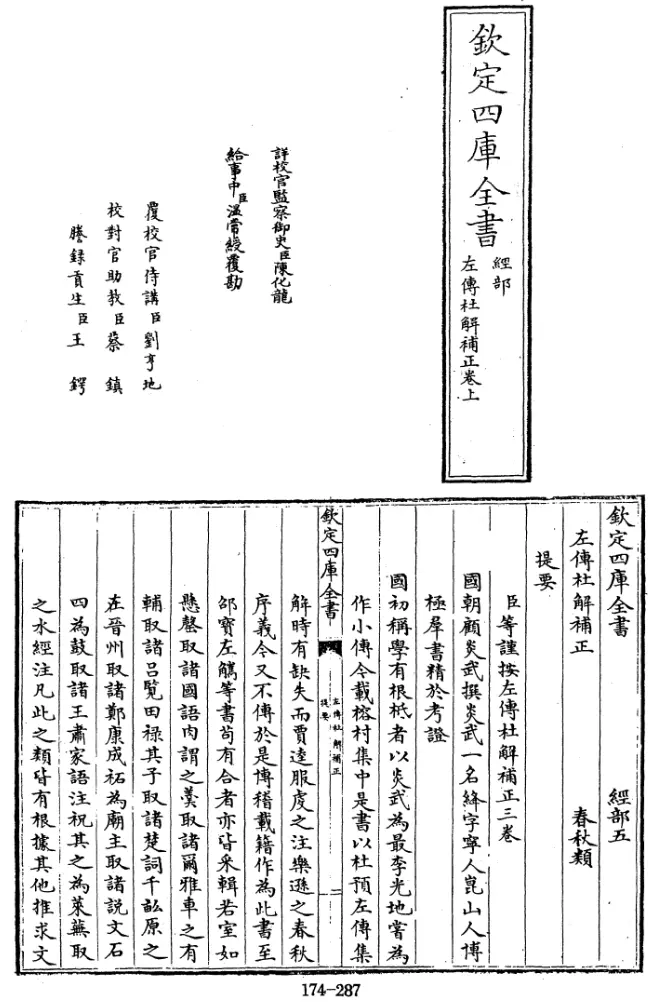 欽定四庫全書
經部
左傳杜解補正卷上
詳校官監察御史臣陳化龍
給事中臣溫常綬覆勘
覆校官侍講臣劉亨地
校對官助教臣蔡鎮
謄錄貢生臣王鍔
欽定四庫全書 經部五
左傳杜解補正 春秋類
提要
臣等謹按左傳杜解補正三卷
國朝顧炎武撰炎武一名絳字寧人崑山人博
極羣書精於考證
國初稱學有根柢者以炎武為最李光地嘗為
作小傳今載榕村集中是書以杜預左傳集
欽定四庫全書
左傳杜解補正
提要
二
解時有缺失而賈逵服虔之注樂遜之春秋
序義今又不傳於是博稽載籍作為此書至
邵寶左觿等書苟有合者亦皆采輯若室如
懸磬取諸國語肉謂之羹取諸爾雅車之有
輔取諸呂覽田祿其子取諸楚詞千畝原之
在晉州取諸鄭康成祏為廟主取諸説文石
四為鼓取諸王肅家語注祝其之為萊蕪取
之水經注凡此之類皆有根據其他推求文
174-287